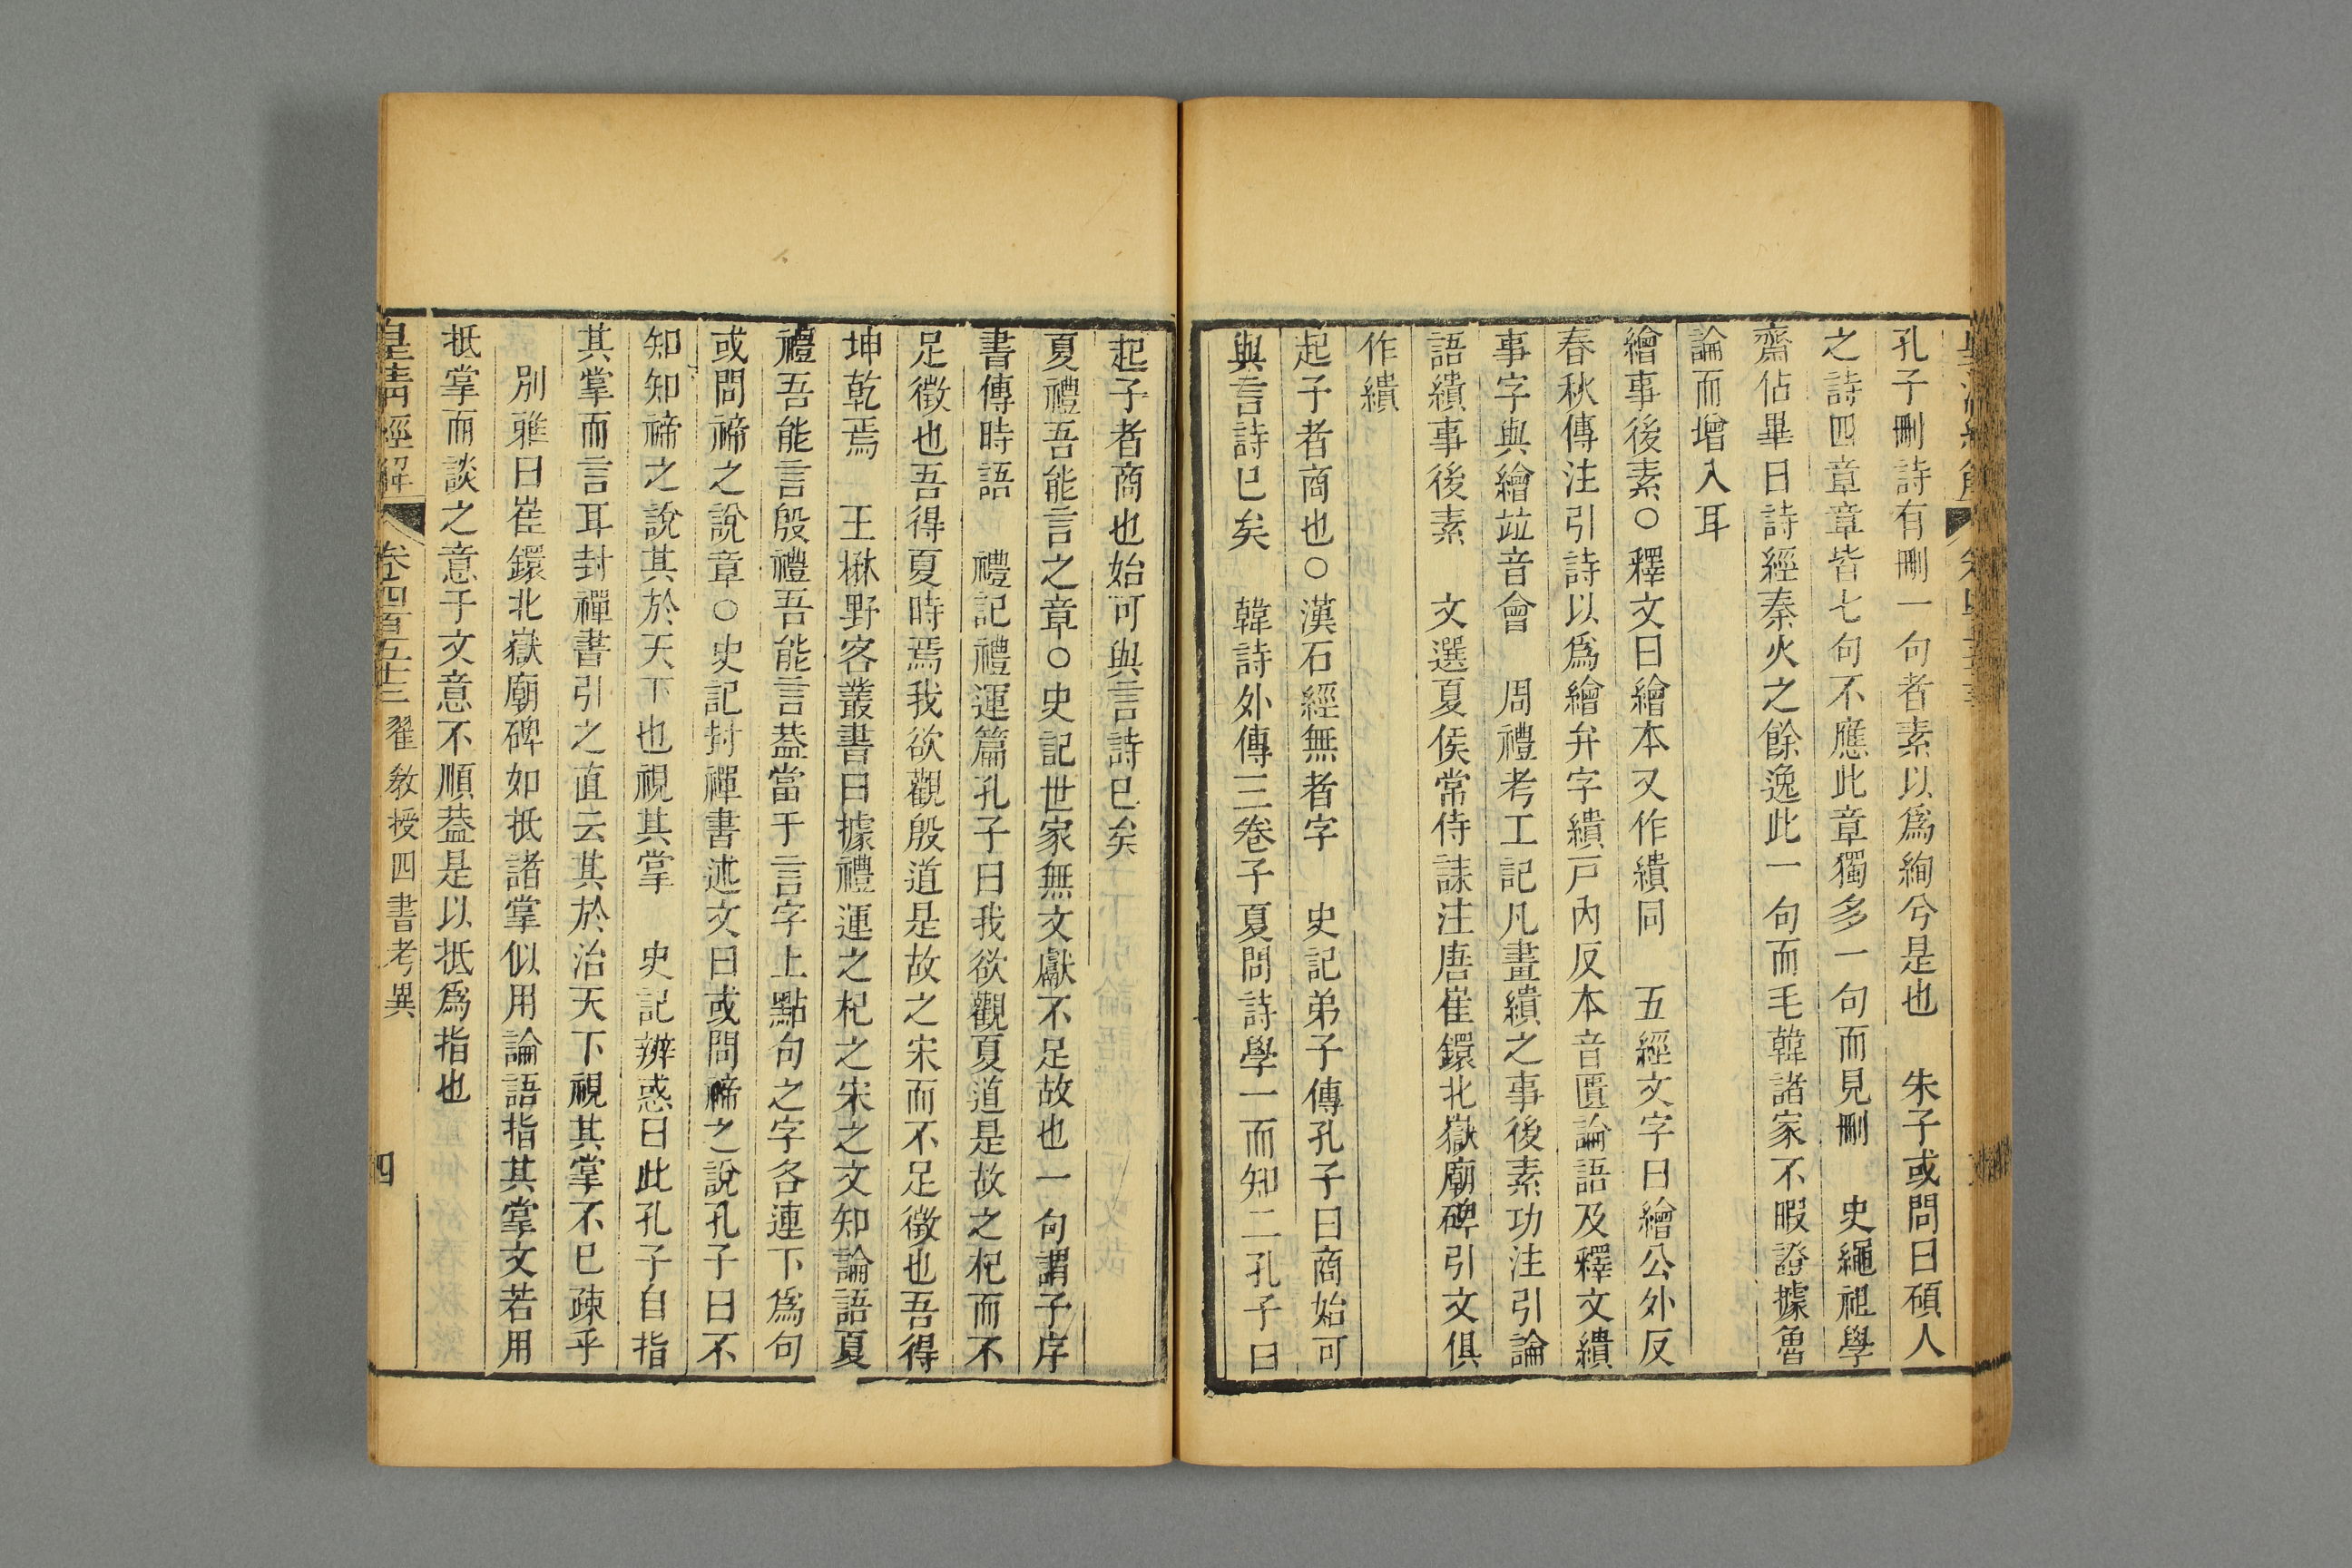 孔子刪詩有刪一句者素以爲絢兮是也　朱子或問曰碩人
之詩四章章皆七句不應此章獨多一句而見刪　史繩祖學
齋佔畢曰詩經秦火之餘逸此一句而毛韓諸家不暇證據魯
論而增入耳
繪事後素○釋文曰繪本又作繢同　五經文字曰繪公外反
春秋傳注引詩以爲繪弁字繢戸內反本音匱論語及釋文繢
事字與繪竝音會　周禮考工記凡畫繢之事後素功注引論
語繢事後素　文選夏侯常侍誄注唐崔鐶北嶽廟碑引文俱
作繢
起子者商也○漢石經無者字　史記弟子傳孔子曰商始可
與言詩已矣　韓詩外傳三卷子夏問詩學一而知二孔子曰
起子者商也始可與言詩已矣
夏禮吾能言之章○史記世家無文獻不足故也一句謂予序
書傳時語　禮記禮運篇孔子曰我欲觀夏道是故之杞而不
足徵也吾得夏時焉我欲觀殷道是故之宋而不足徵也吾得
坤乾焉　王楙野客叢書曰據禮運之杞之宋之文知論語夏
禮吾能言殷禮吾能言葢當于言字上點句之字各連下爲句
或問禘之說章○史記封禪書述文曰或問禘之說孔子曰不
知知禘之說其於天下也視其掌　史記辨惑曰此孔子自指
其掌而言耳封禪書引之直云其於治天下視其掌不已疎乎
別雅曰崔鐶北嶽廟碑如抵諸掌似用論語指其掌文若用
抵掌而談之意于文意不順葢是以抵爲指也
皇淸經解　卷四百五十三　翟教授四書考異　四